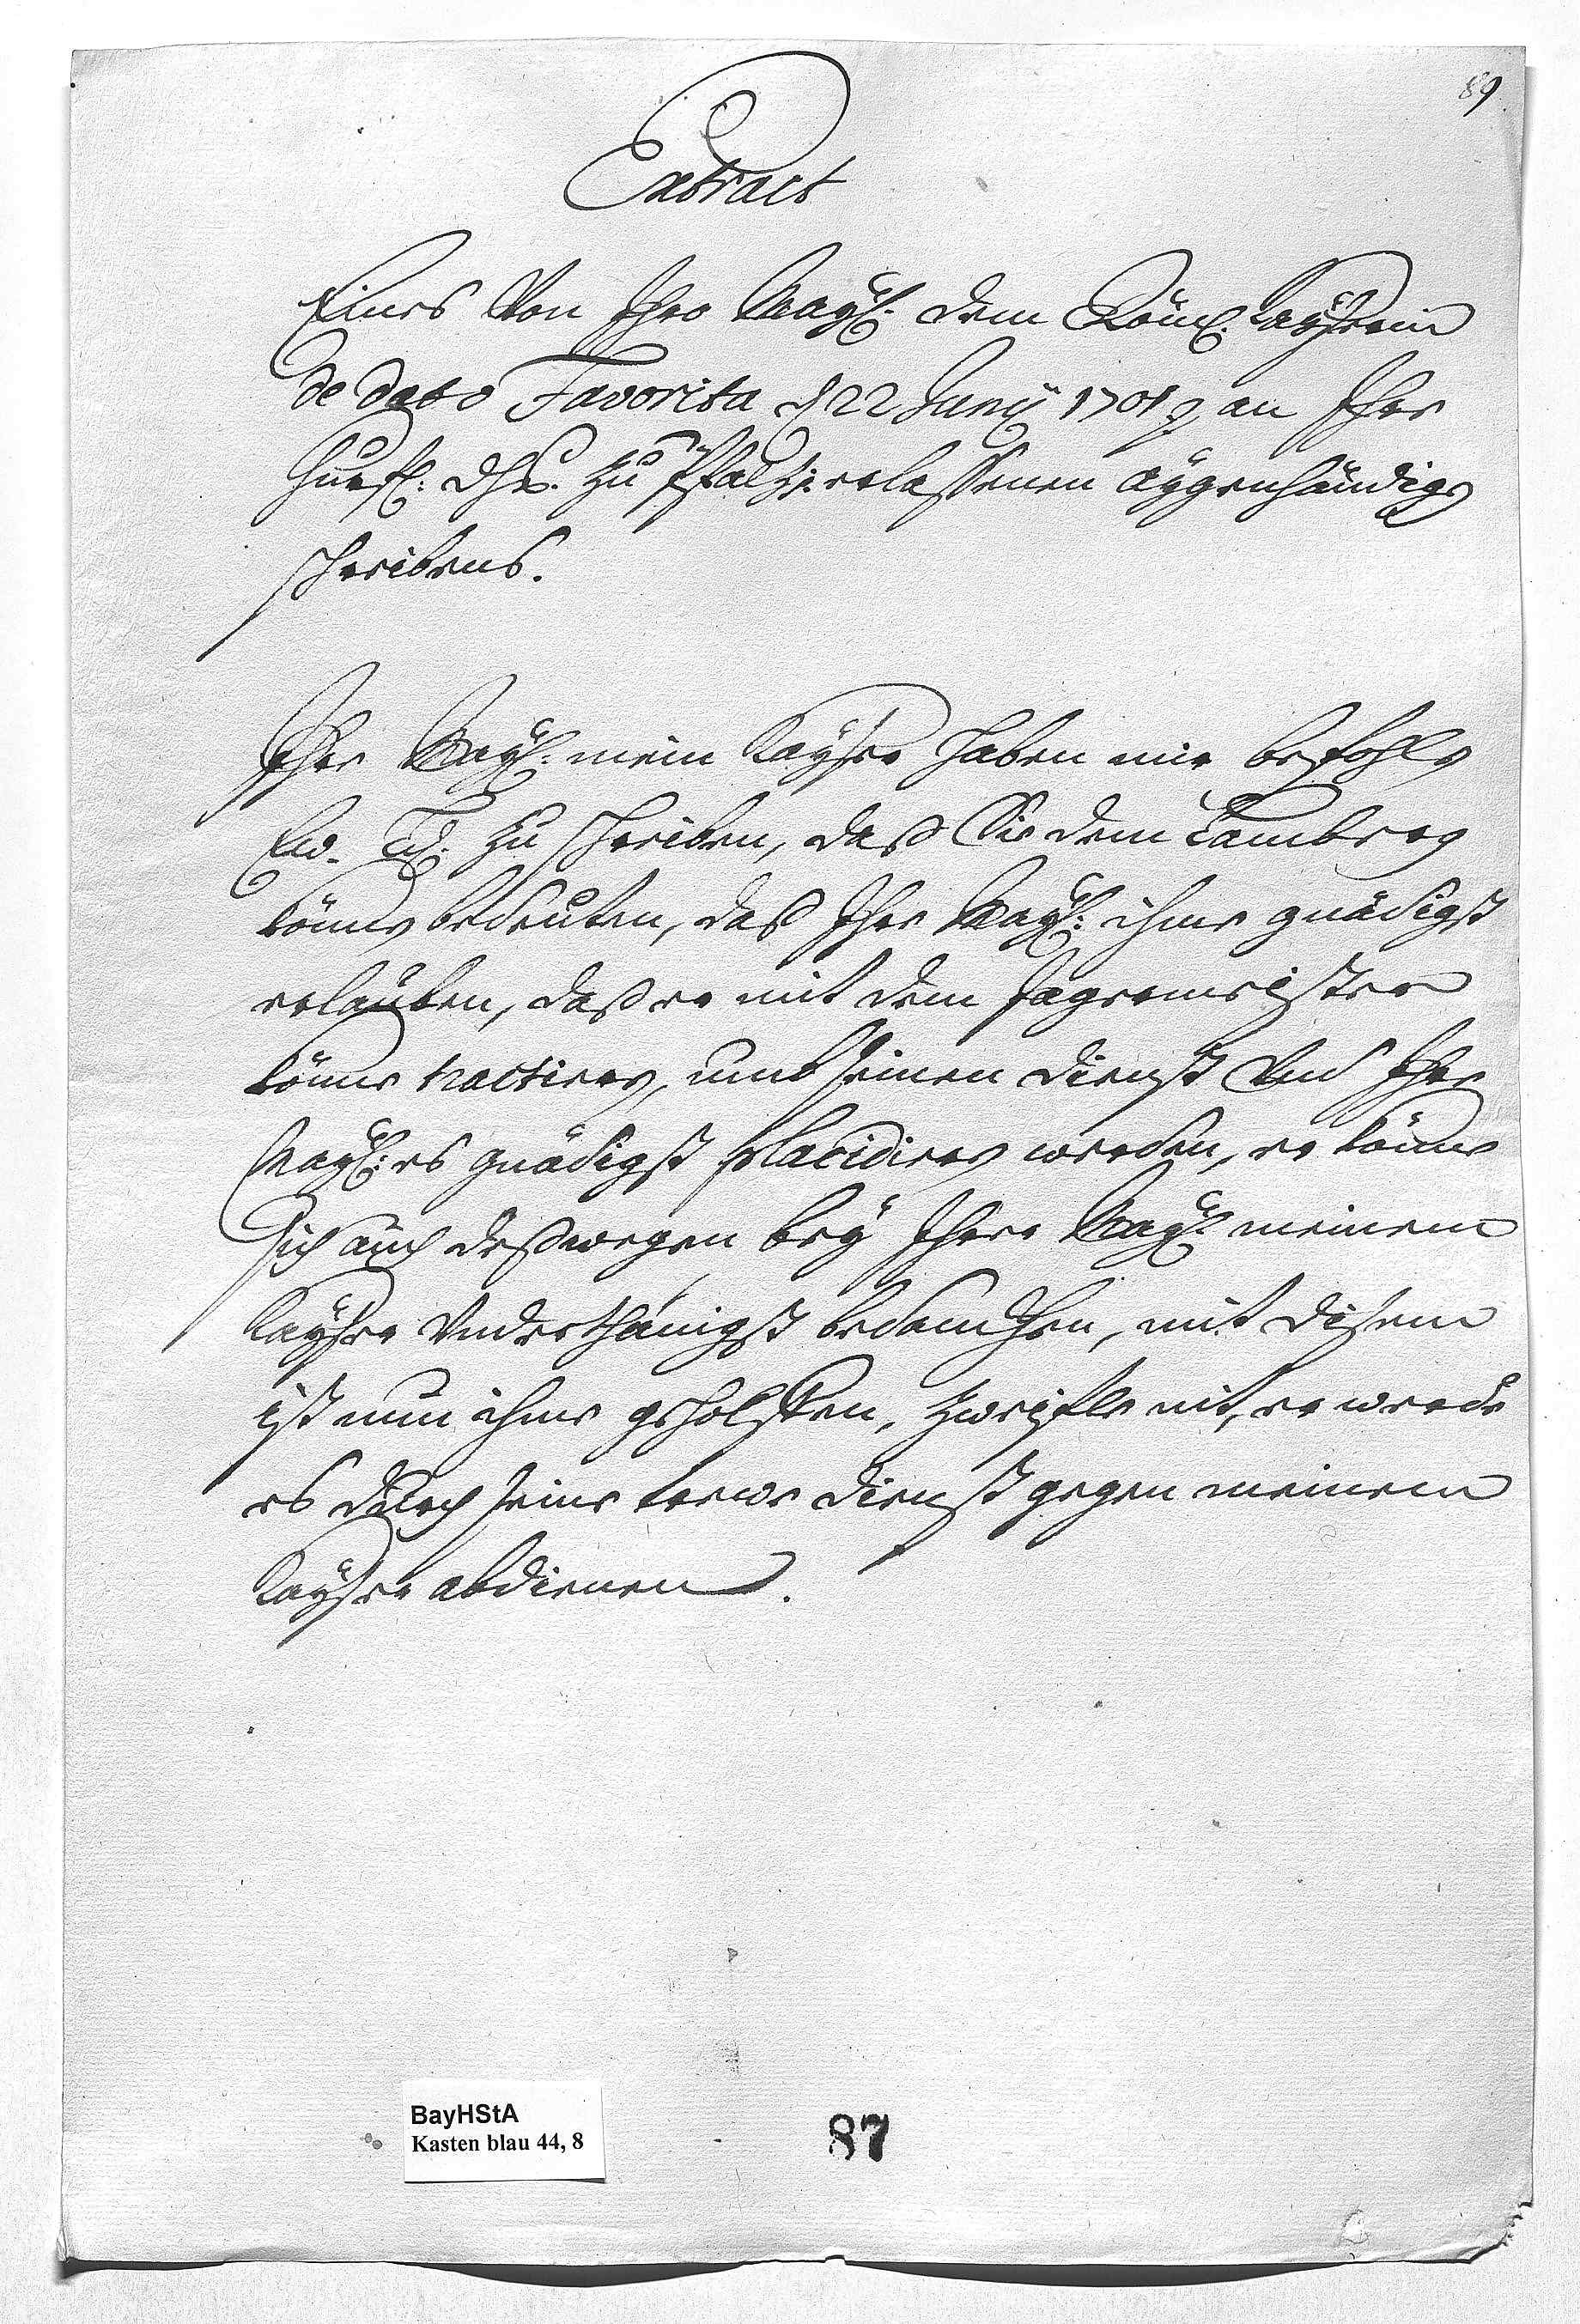 89
Extract
Eines Von Ihro Mayl: dem Röm: Kayserin
de dato Favorita d 22 Junÿ 1701 an Ihro
Churfl: Dhl. zu Pfaltz erlassenen aÿgenhändigen
schreibens.
Ihro Mayl: mein Kayser haben mir befohlen
Ew. Ld. zu schreiben, daß Sie dem Lamberg
können bedeuten, daß Ihro Mayl: ihme gnädigst
erlauben, daß er mit dem Jägermeister
könne tractiren, umb seinen dienst Und Ihro
Mayl: es gnädigst placidiren werden, er könne
sich auch deßwegen beÿ Ihro Mayl meinem
Kayser Underthänigst bedanckhen, mit disem
ist nun ihme geholffen, zweifle nit, er werde
es durch seine trewe dienst gegen meinem
Kayser abdienen.
BayHStA
Kasten blau 44, 8
87